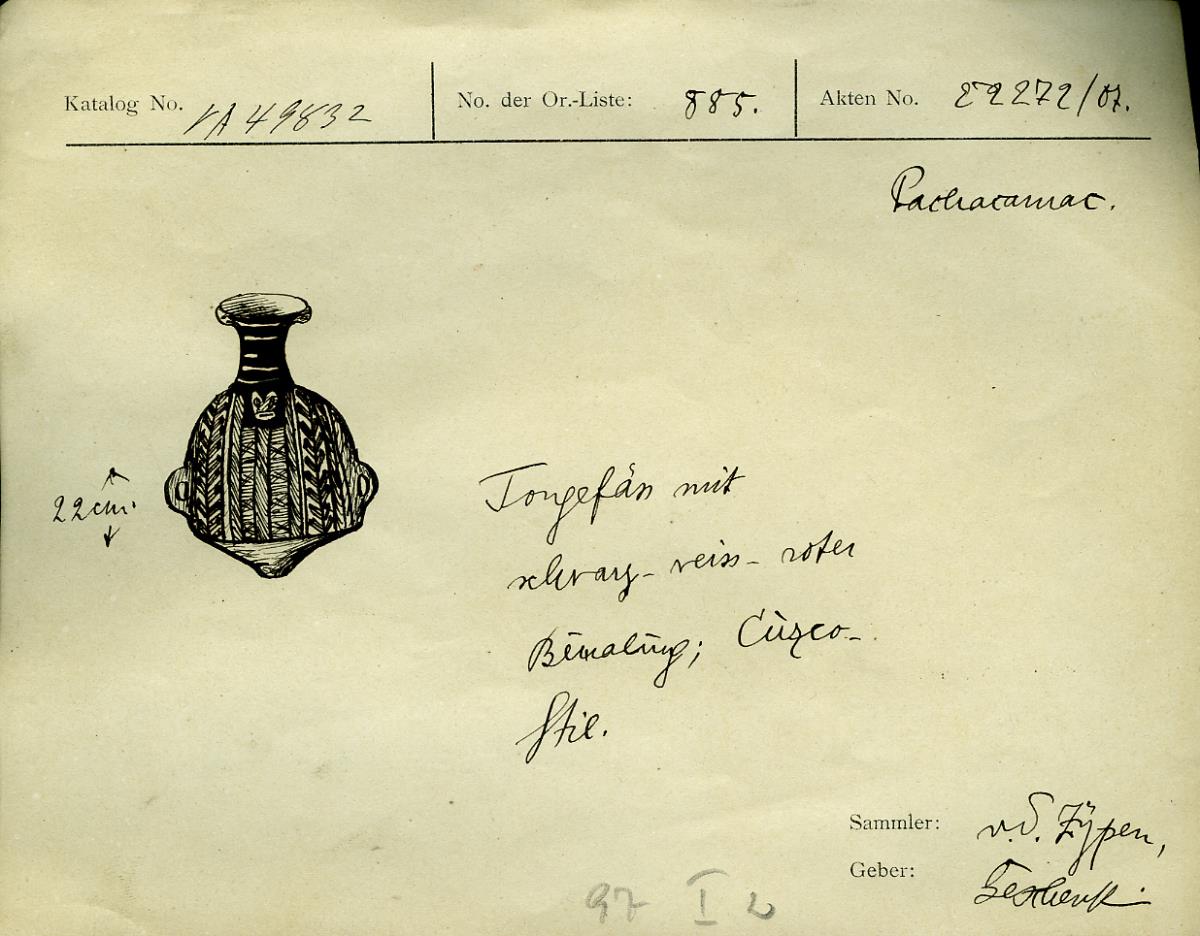 Katalog No. VA 49832 No. der Or.-Liste: 885. Akten No. 22272/07.
Pachacamac.
22 cm.
Tongefäss mit
schwarz-weiss-roter
Bemalung; Cuzco-
Stil.
Sammler: v. d. Zypen,
Geber: Geschenk.
97 I